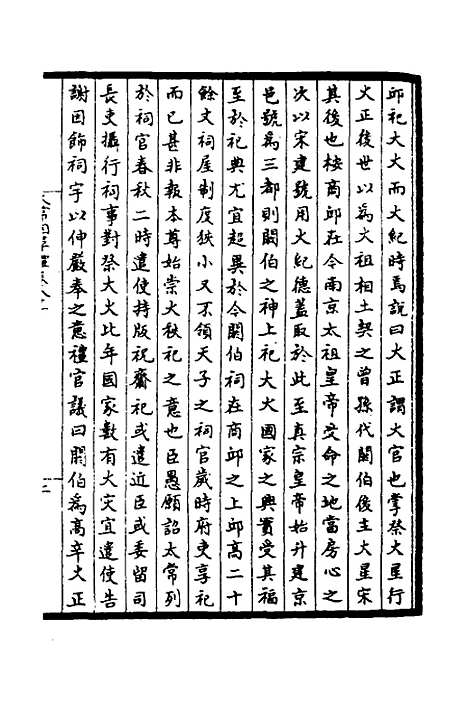 邱祀大火而火紀時焉説曰火正謂火官也掌祭火星行
火正後世以為火祖相土契之曾孫代閼伯後主火星宋
其後也按商邱在今南京太祖皇帝受命之地當房心之
次以宋建號用火紀德蓋取於此至真宗皇帝始升建京
邑號為三都則閼伯之神上祀大火國家之興實受其福
至於祀典尤宜超異於今閼伯祠在商邱之上邱高二十
餘丈祠屋制度狹小又不領天子之祠官歲時府吏享祀
而已甚非報本尊始崇大秩祀之意也臣愚願詔太常列
於祠官春秋二時遣使持版祝齋祀或遣近臣或委留司
長吏攝行祠事對祭大火比年國家數有火灾宜遣使告
謝因飾祠宇以伸嚴奉之意禮官議曰閼伯為高辛火正
太常因革禮卷八十